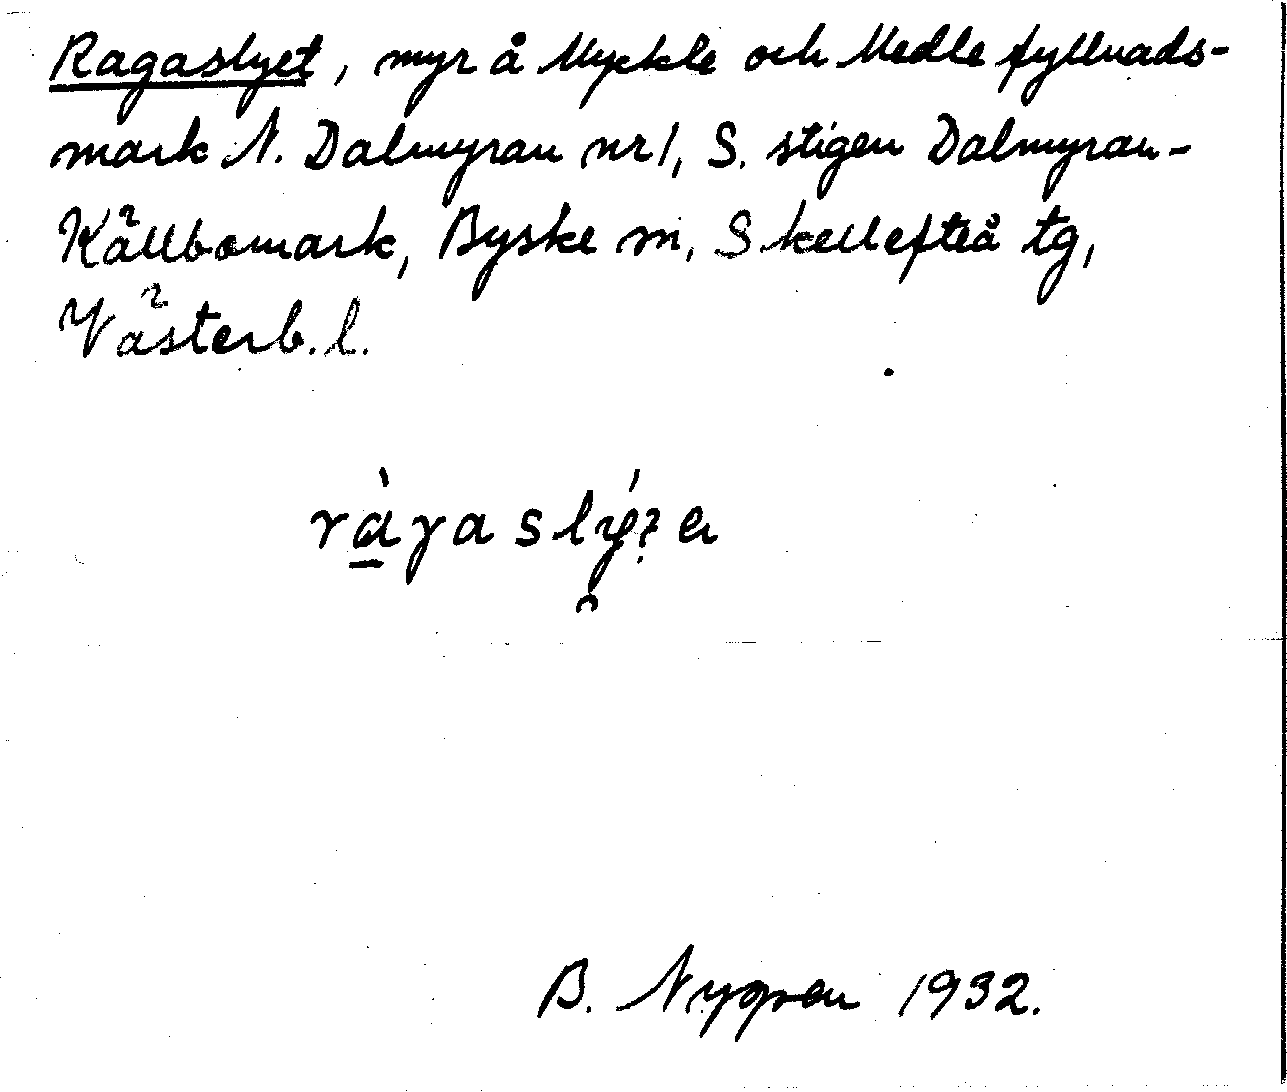 Ragaslyet, myr å Myckle och Medle fyllnads-
mark N. Dalmyran nr 1, S. stigen Dalmyran-
Källbomark, Byske sn, Skellefteå tg,
Västerb. l.
ràɣaslý
B. Nygren 1932.